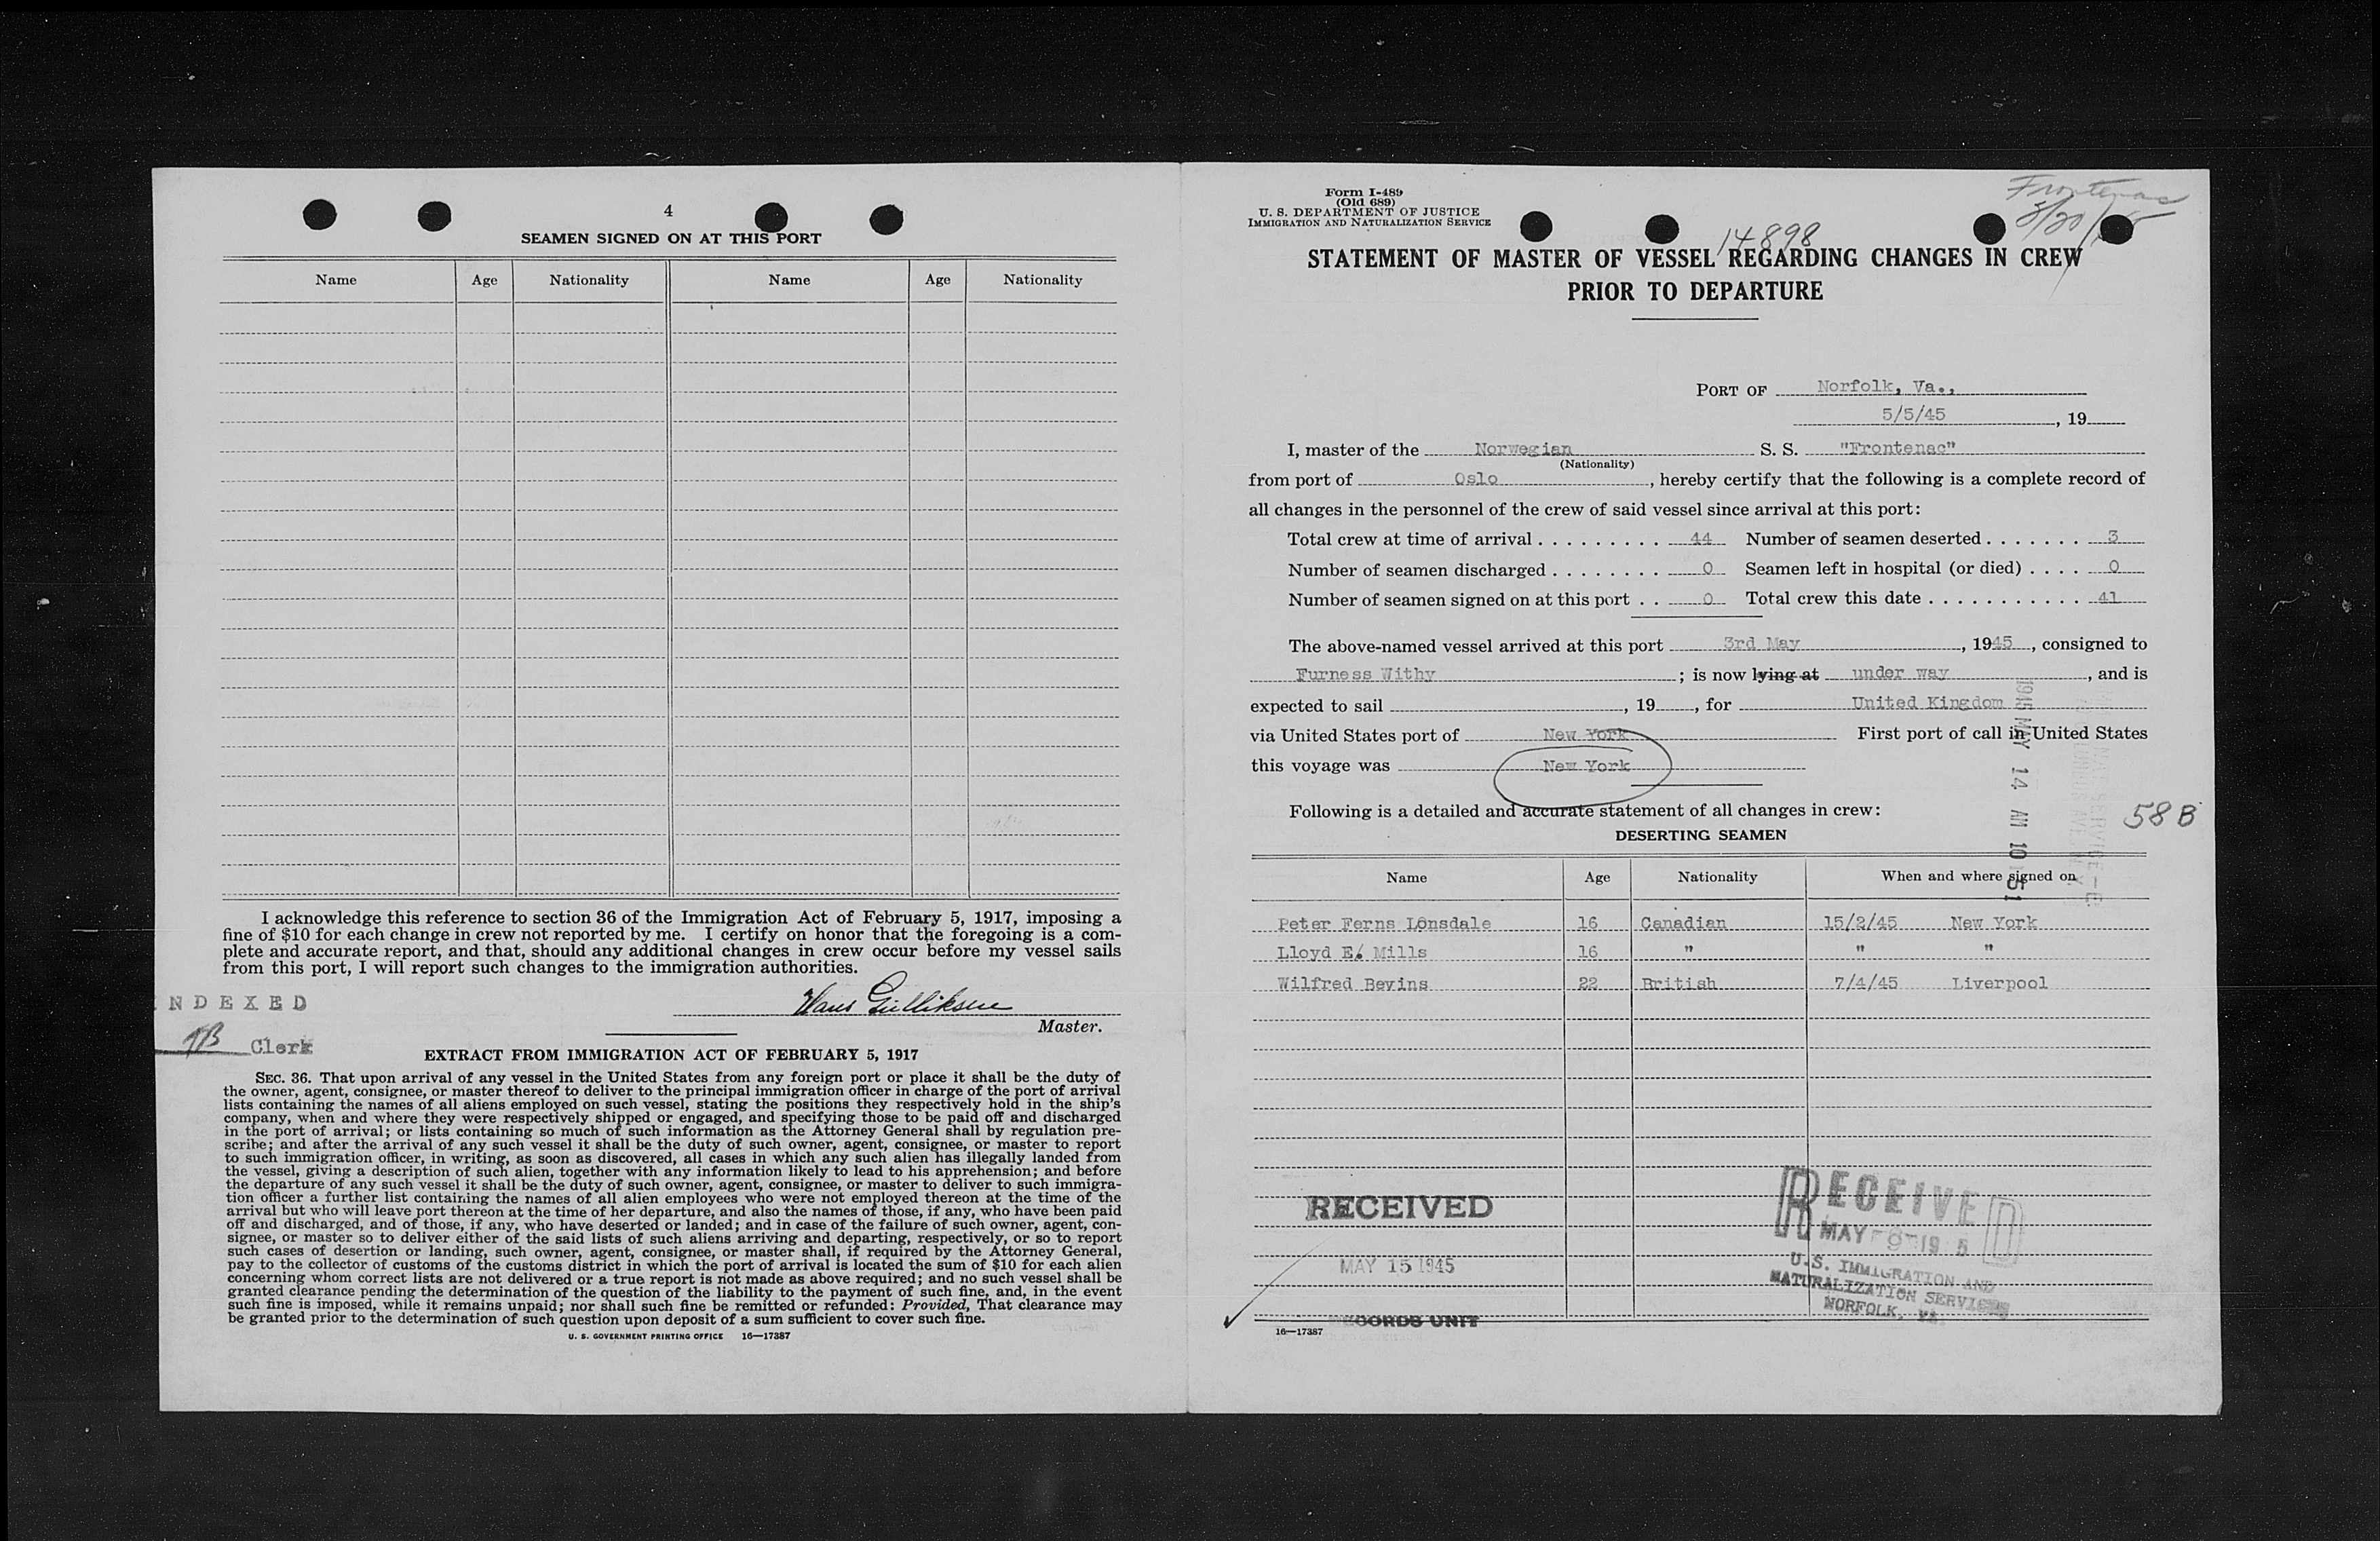 4
SEAMEN SIGNED ON AT THIS PORT
Name Age Nationality Name Age Nationality
I acknowledge this reference to section 36 of the Immigration Act of February 5, 1917, imposing a
fine of $10 for each change in crew not reported by me. I certify on honor that the foregoing is a com-
plete and accurate report, and that, should any additional changes in crew occur before my vessel sails
from this port, I will report such changes to the immigration authorities.
NDEXED
Hans Gulliksen
Master.
Clerk
EXTRACT FROM IMMIGRATION ACT OF FEBRUARY 5, 1917
SEC. 36. That upon arrival of any vessel in the United States from any foreign port or place it shall be the duty of
the owner, agent, consignee, or master thereof to deliver to the principal immigration officer in charge of the port of arrival
lists containing the names of all aliens employed on such vessel, stating the positions they respectively hold in the ship's
company, when and where they were respectively shipped or engaged, and specifying those to be paid off and discharged
in the port of arrival; or lists containing so much of such information as the Attorney General shall by regulation pre-
scribe; and after the arrival of any such vessel it shall be the duty of such owner, agent, consignee, or master to report
to such immigration officer, in writing, as soon as discovered, all cases in which any such alien has illegally landed from
the vessel, giving a description of such alien, together with any information likely to lead to his apprehension; and before
the departure of any such vessel it shall be the duty of such owner, agent, consignee, or master to deliver to such immigra-
tion officer a further list containing the names of all alien employees who were not employed thereon at the time of the
arrival but who will leave port thereon at the time of her departure, and also the names of those, if any, who have been paid
off and discharged, and of those, if any, who have deserted or landed; and in case of the failure of such owner, agent, con-
signee, or master so to deliver either of the said lists of such aliens arriving and departing, respectively, or so to report
such cases of desertion or landing, such owner, agent, consignee, or master shall, if required by the Attorney General,
pay to the collector of customs of the customs district in which the port of arrival is located the sum of $10 for each alien
concerning whom correct lists are not delivered or a true report is not made as above required; and no such vessel shall be
granted clearance pending the determination of the question of the liability to the payment of such fine, and, in the event
such fine is imposed, while it remains unpaid; nor shall such fine be remitted or refunded: Provided, That clearance may
be granted prior to the determination of such question upon deposit of a sum sufficient to cover such fine.
U. S. GOVERNMENT PRINTING OFFICE 16—17387
Form I-489
(Old 689)
U. S. DEPARTMENT OF JUSTICE
IMMIGRATION AND NATURALIZATION SERVICE
Frontenac
14898
STATEMENT OF MASTER OF VESSEL REGARDING CHANGES IN CREW
PRIOR TO DEPARTURE
PORT OF Norfolk, Va.,
5/5/45, 19
I, master of the Norwegian S. S. "Frontenac"
(Nationality)
from port of Oslo, hereby certify that the following is a complete record of
all changes in the personnel of the crew of said vessel since arrival at this port:
Total crew at time of arrival . . . . . . . . . 44 Number of seamen deserted . . . . . . . 3
Number of seamen discharged . . . . . . . . 0 Seamen left in hospital (or died) . . . . 0
Number of seamen signed on at this port . . 0 Total crew this date . . . . . . . . . . . . 41
The above-named vessel arrived at this port 3rd May, 1945, consigned to
Furness Withy; is now lying at under way, and is
expected to sail , 19 , for United Kingdom
via United States port of New York First port of call in United States
this voyage was New York
1945 MAY 14 AM 10 51
Following is a detailed and accurate statement of all changes in crew:
58 B
DESERTING SEAMEN
Name Age Nationality When and where signed on
Peter Ferns Lonsdale 16 Canadian 15/2/45 New York
Lloyd E. Mills 16 " " "
Wilfred Bevins 22 British 7/4/45 Liverpool
RECEIVED
MAY 15 1945
RECEIVED
MAY
U.S. IMMIGRATION AND
NATURALIZATION SERVICE
NORFOLK, VA.
16—17387
UNIT